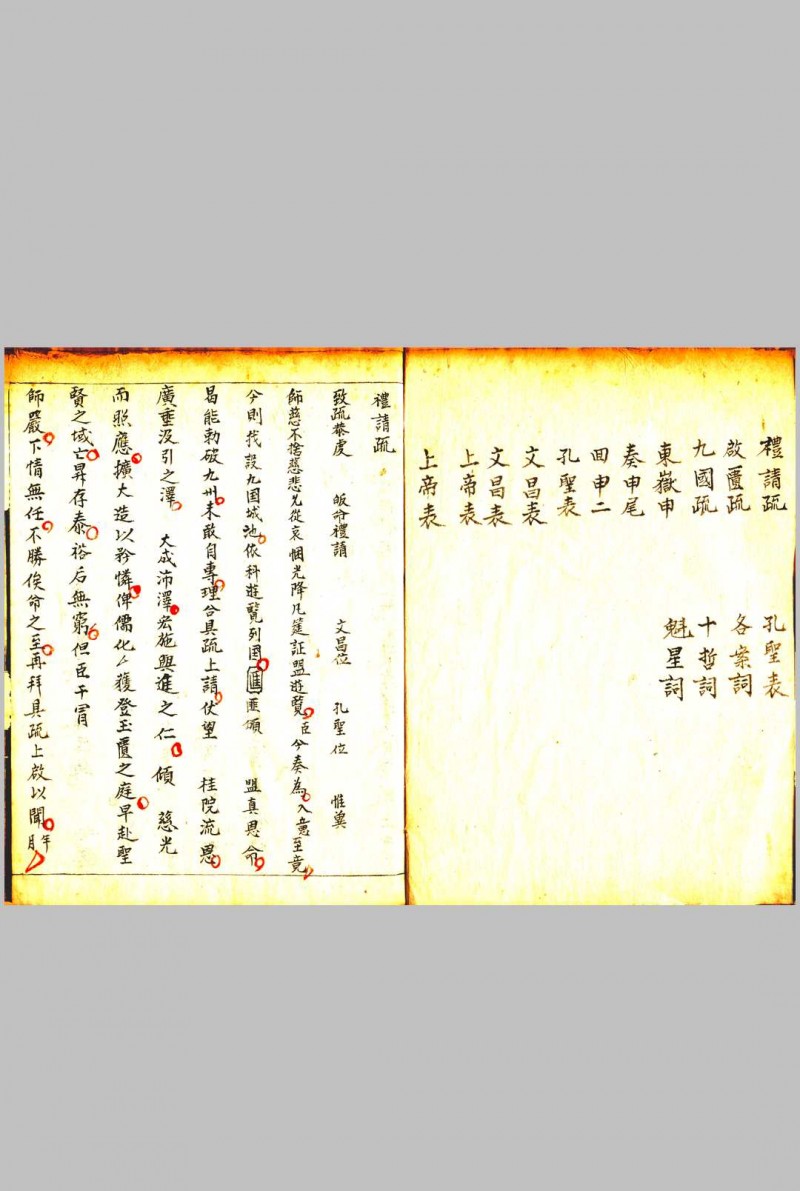 禮請疏
啟匱疏
九國疏
東嶽申
奏申尾
回申二
孔聖表
文昌表
文昌表
上帝表
上帝表
孔聖表
各案詞
十哲詞
魁星詞
禮請疏
致疏恭虔 皈命禮請 文昌位 孔聖位 惟冀
師慈不捨慈悲允從哀悃光降凡筵証盟遊覽臣今奏為入意至竟
今則找設九囯城池依科遊覽列囯匯匪頒 盟真恩命
曷能勅破九州未敢自專理合具疏上請伏望 桂院流恩
廣垂汲引之澤 大成沛澤宏施興進之仁 傾 慈光
而照應擴大造以矜憐俾儒化亡獲登玉匱之庭早赴聖
賢之域亡昇存泰裕后無窮但臣干冒
師嚴下情無任不勝俟命之至再拜具疏上啟以聞 年月